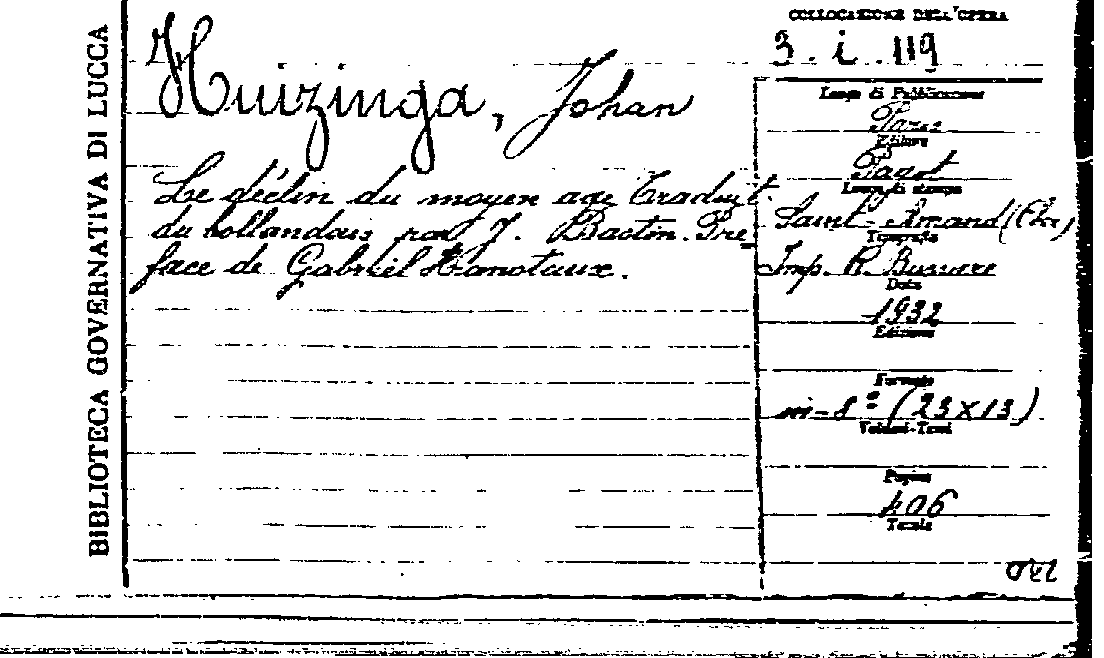 BIBLIOTECA GOVERNATIVA DI LUCCA
COLLOCAZIONE DELL'OPERA
3. i. 119
Huizinga, Johan
Le déclin du moyen age Traduit
du hollandais par J. Bastin. Pre-
face de Gabriel Hanotaux.
Luogo di Pubblicazione
Paris
Editore
Payot
Luogo di stampa
Saint-Amand (Cher)
Tipografia
Imp. R. Bussiere
Data
1932
Edizione
Formato
in-8° (23x13)
Volumi-Tomi
Pagine
406
Tavole